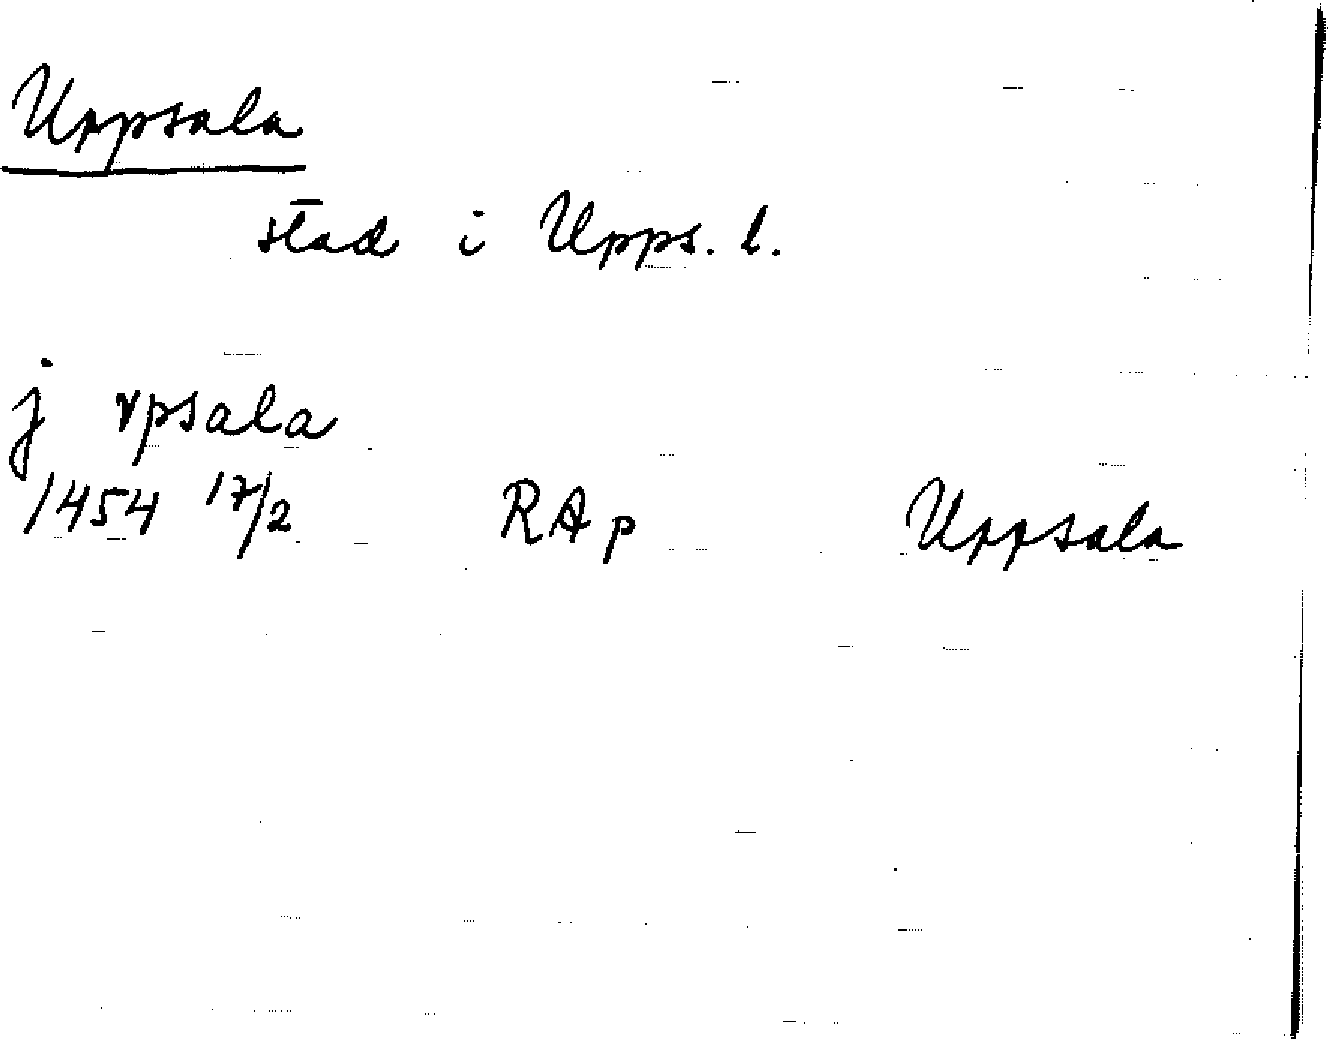 Uppsala
stad i Upps. l.
j vpsala
1454 17/2 RAp Uppsala